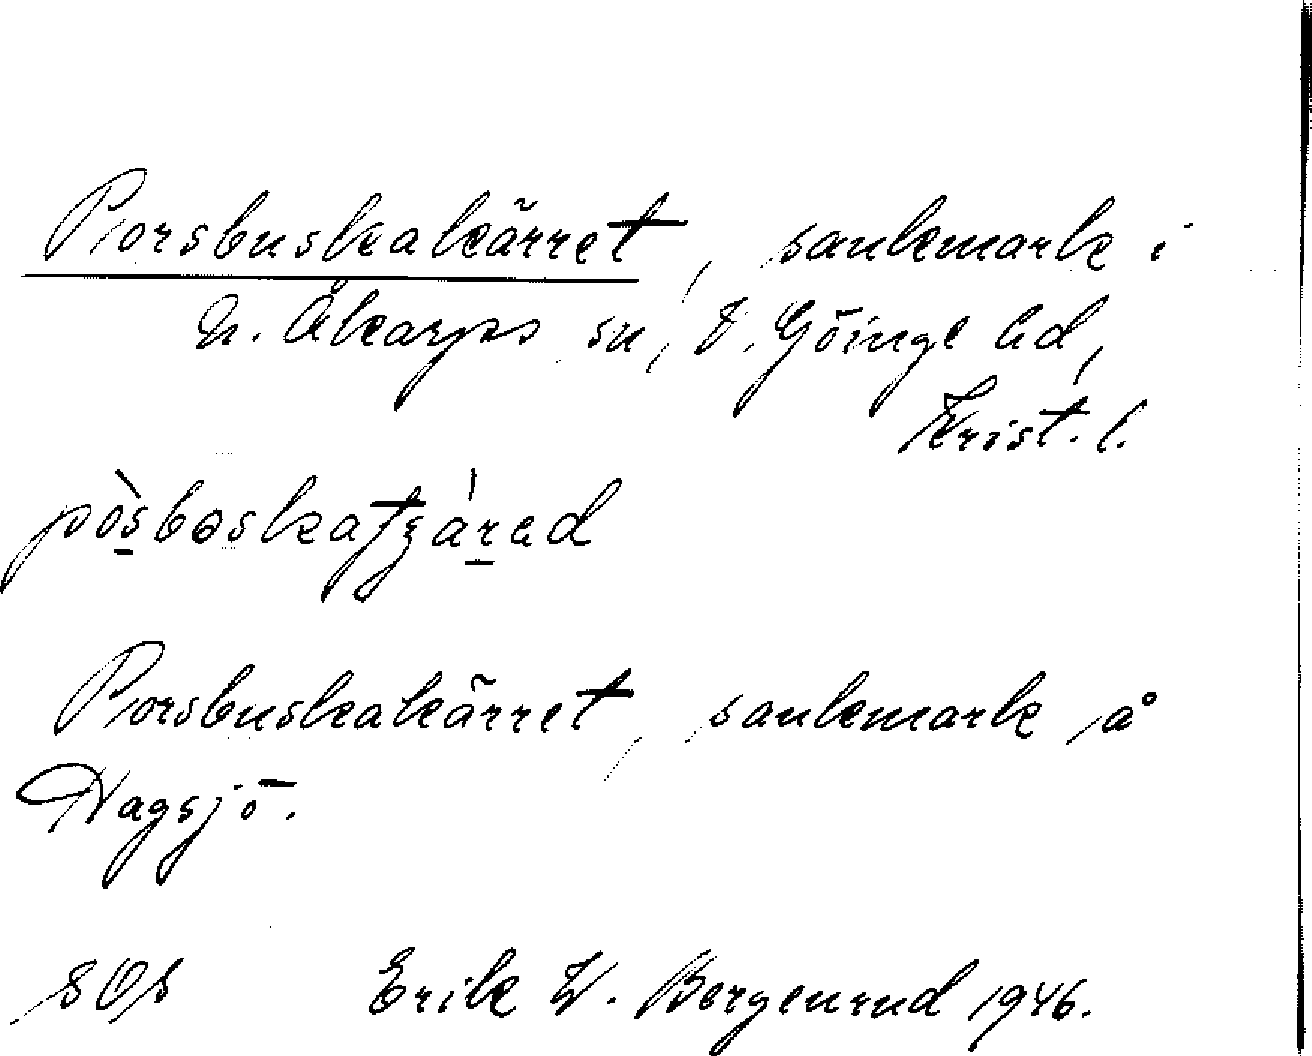 Porsbuskakärret, sankmark i
N. Åkarps sn, V. Göinge hd,
Krist. l.
Porsbuskakärret, sankmark å
Hagsjö.
SOS Erik W. Bergenrud 1946.